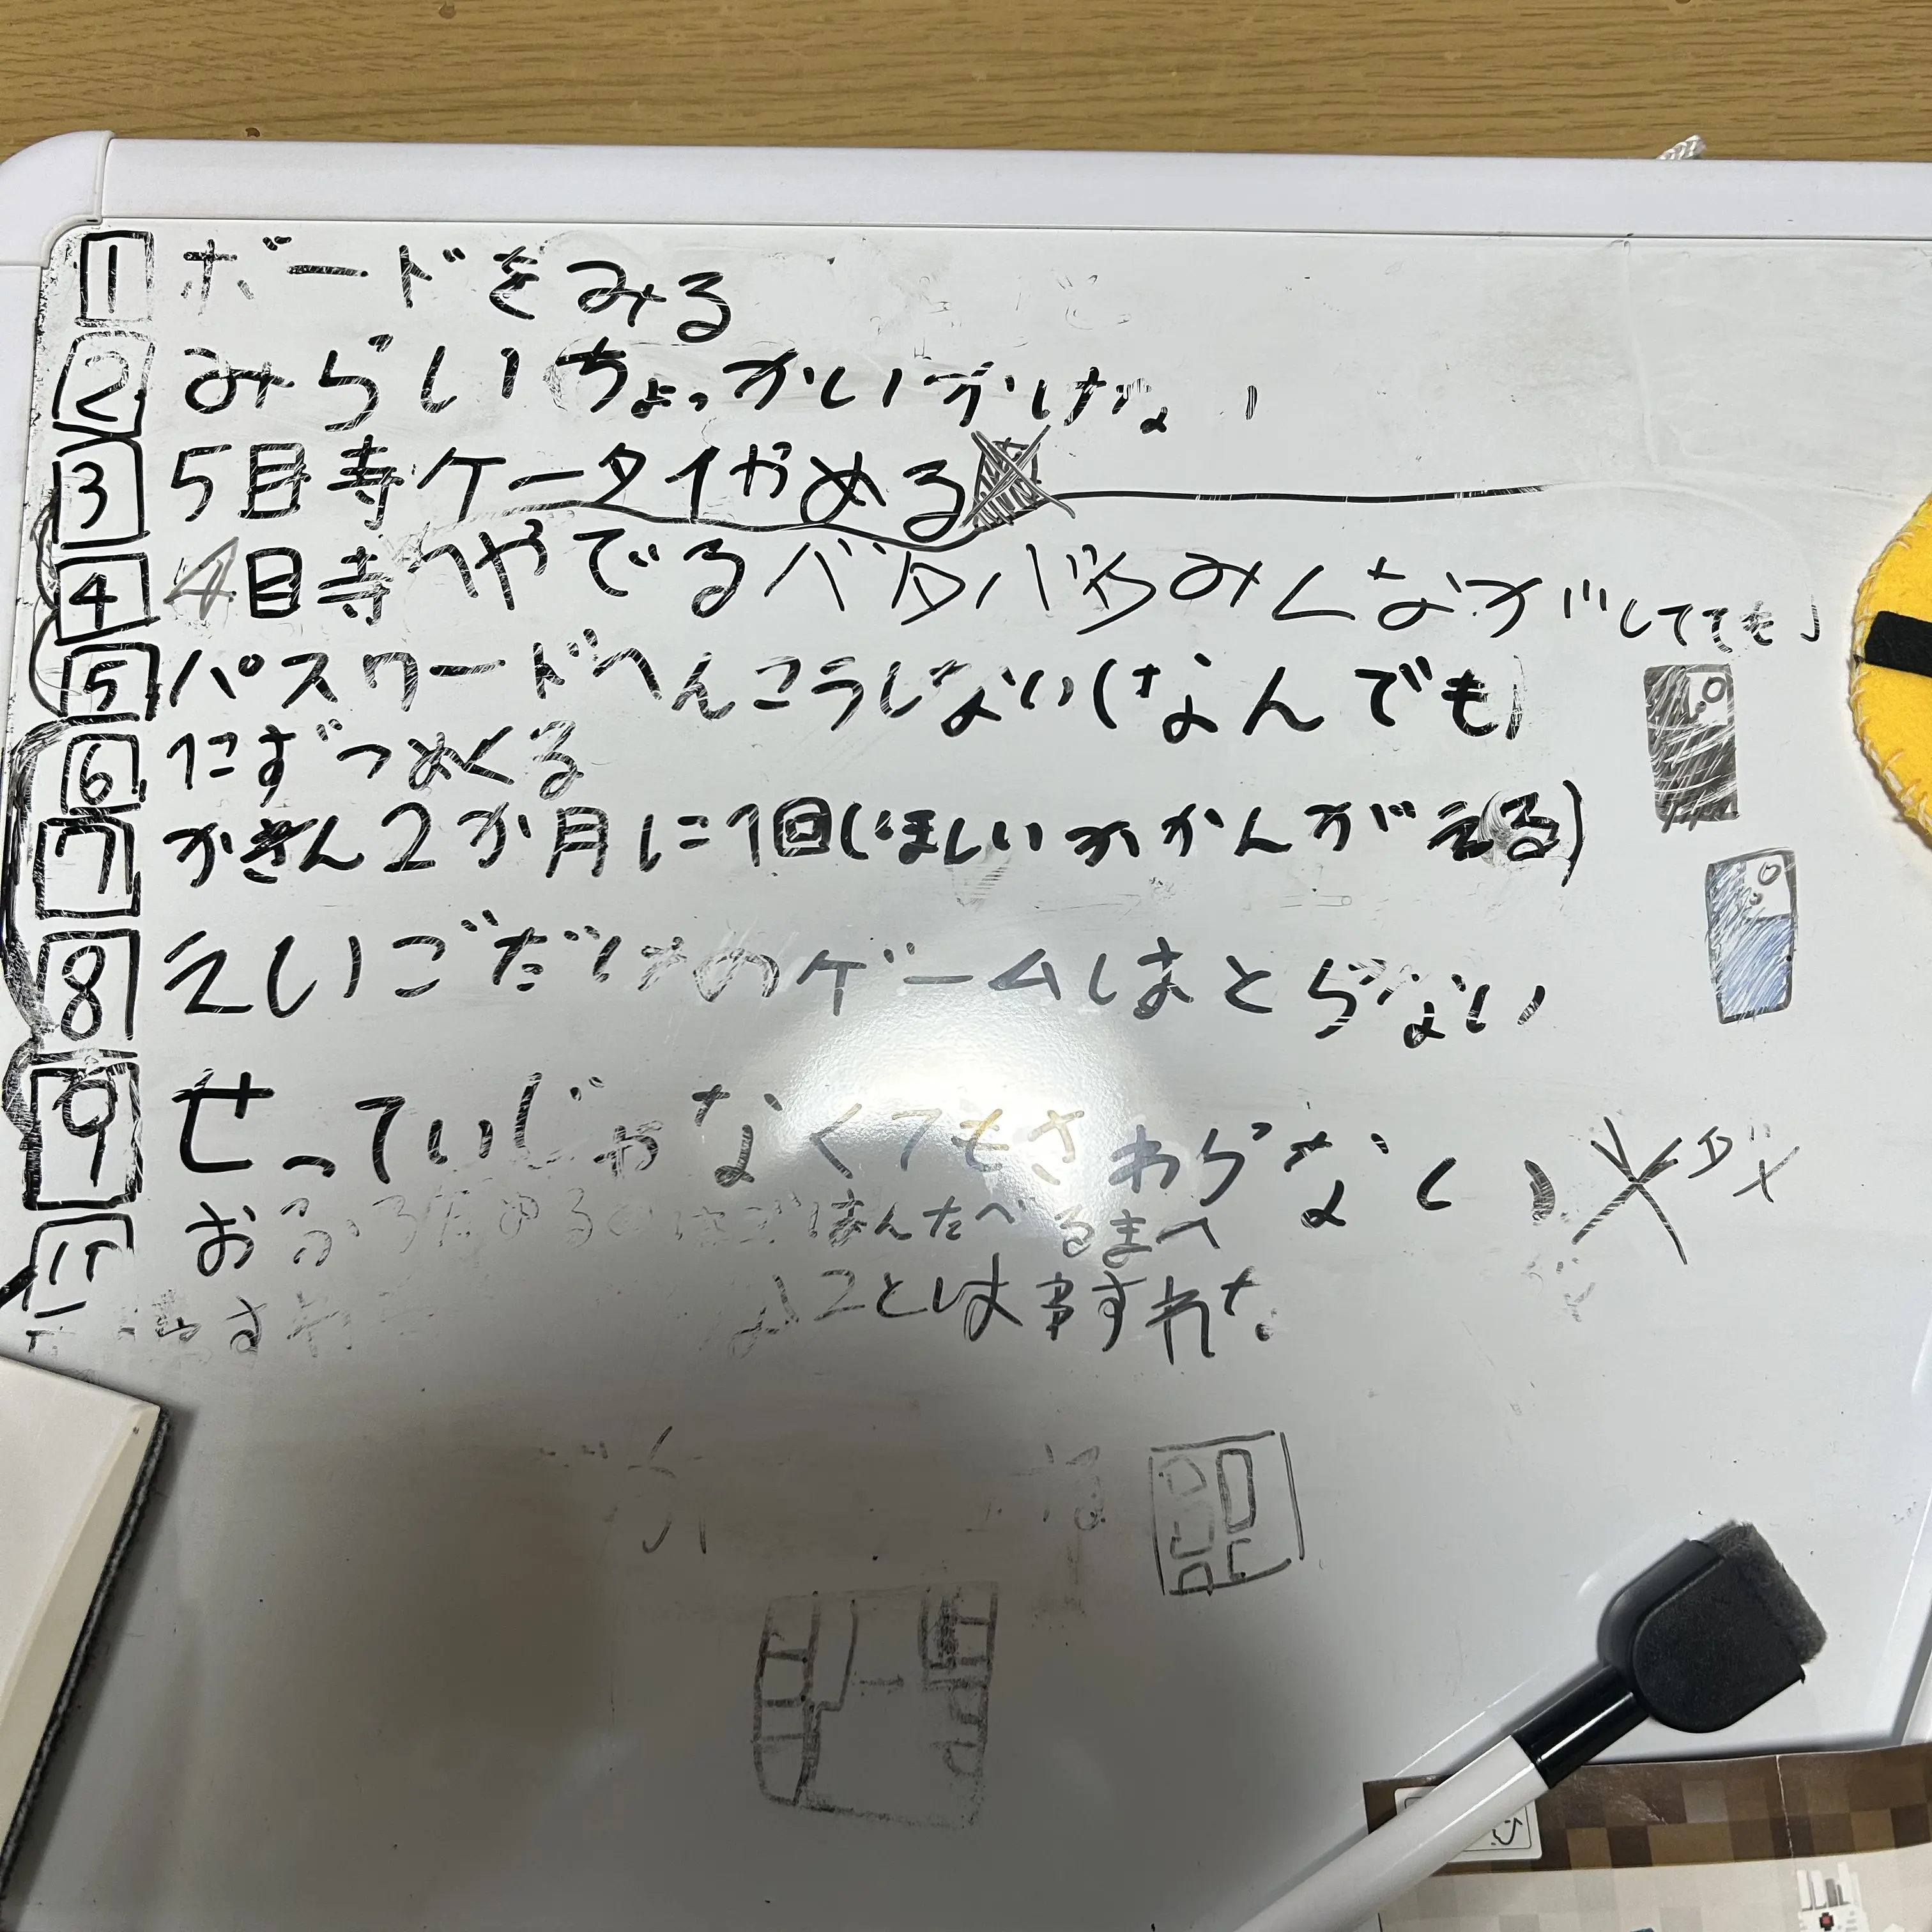 1 ボードをみる
2 みらいちょっかいかけない
3 5時ケータイやめる
4 4時へやでるバタバタみんながしてても
5 パスワードへんこうしない(なんでも)
6 にずつめくる
7 かきん2か月に1回(ほしいかかんがえる)
8 えいごだけのゲームはとらない
9 せっていじゃなくてもさわらない
11 おふろためるのはごはんたべるまへ
ことは